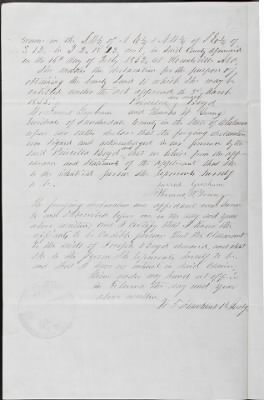 in the S½ of N½ & N½ of S½ of
S 12, T 2, R 12 west, in said County
on the 16th day of July 1852, at Huntsville Ala.
She makes the declaration for the purpose of
obtaining the bounty land to which she may be
entitled under the act approved the 3rd March
1855.
Priscilla Boyd
We and Thomas
residents of Lauderdale County in the State of Alabama
upon our oaths declare that the foregoing declaration
was signed and acknowledged in our presence by the
said Priscilla Boyd, that we believe from the app-
earance and statements of the applicant that she
is the identical person she represents herself
to be.
The foregoing declaration and affidavit was sworn
to and subscribed before me on the day and year
above written, and I certify that I know the
affiants to be credible persons that the claimant
is the widow of Joseph Boyd deceased, and that
she is the person she represents herself to be,
and that I have no interest in said claim.
Given under my hand at office
in Florence the day and year
above written